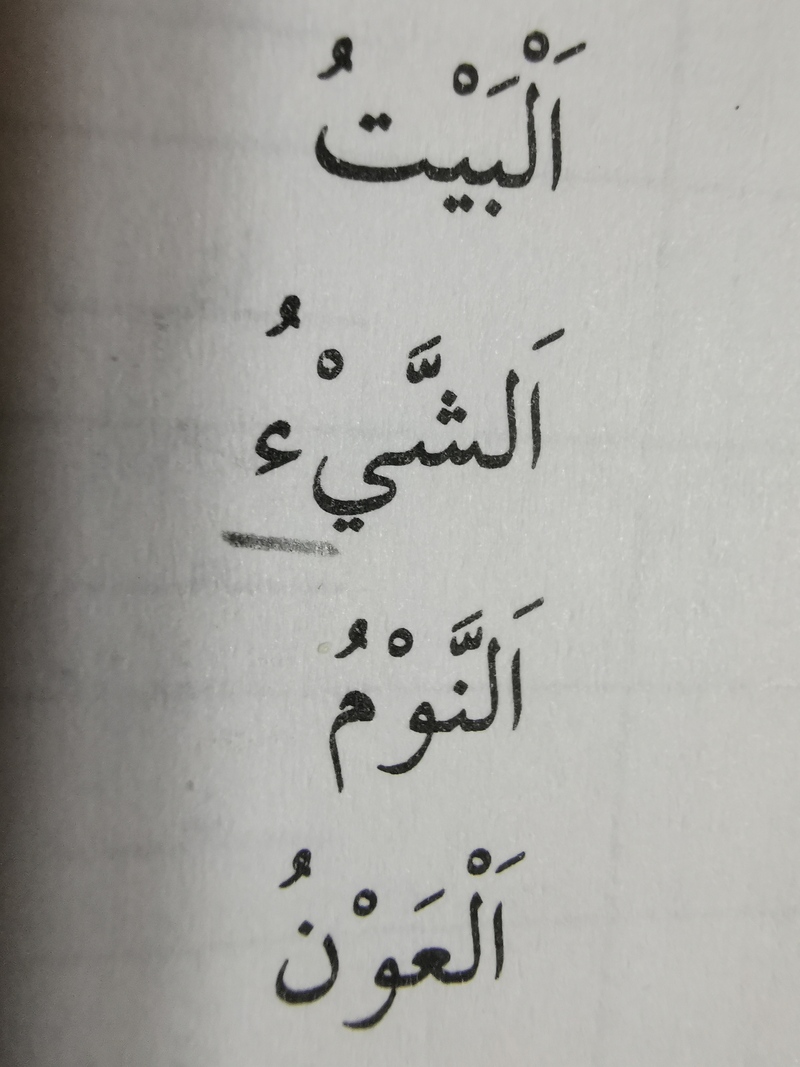 اَلْبَيْتُ
اَلشَّيْءُ
اَلنَّوْمُ
اَلْعَوْنُ